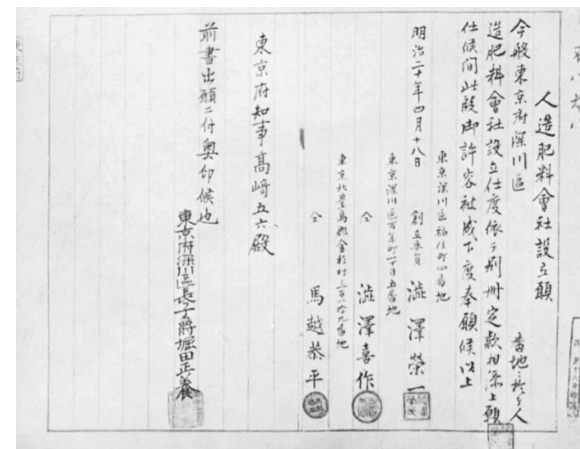 人造肥料會社設立願
今般東京府深川區 番地ニ於テ人
造肥料會社設立仕度依テ別冊定款相添上願
仕候間此段御許容被成下度奉願候以上
東京深川區福住町四番地
明治二十年四月十八日 創立委員 澁澤榮一
東京深川區万年町一丁目五番地
仝 澁澤喜作
東京北豊島郡金杉村三百八拾九番地
仝 馬越恭平
東京府知事高崎五六殿
前書出願ニ付奥印候也
東京府深川區長子爵堀田正養